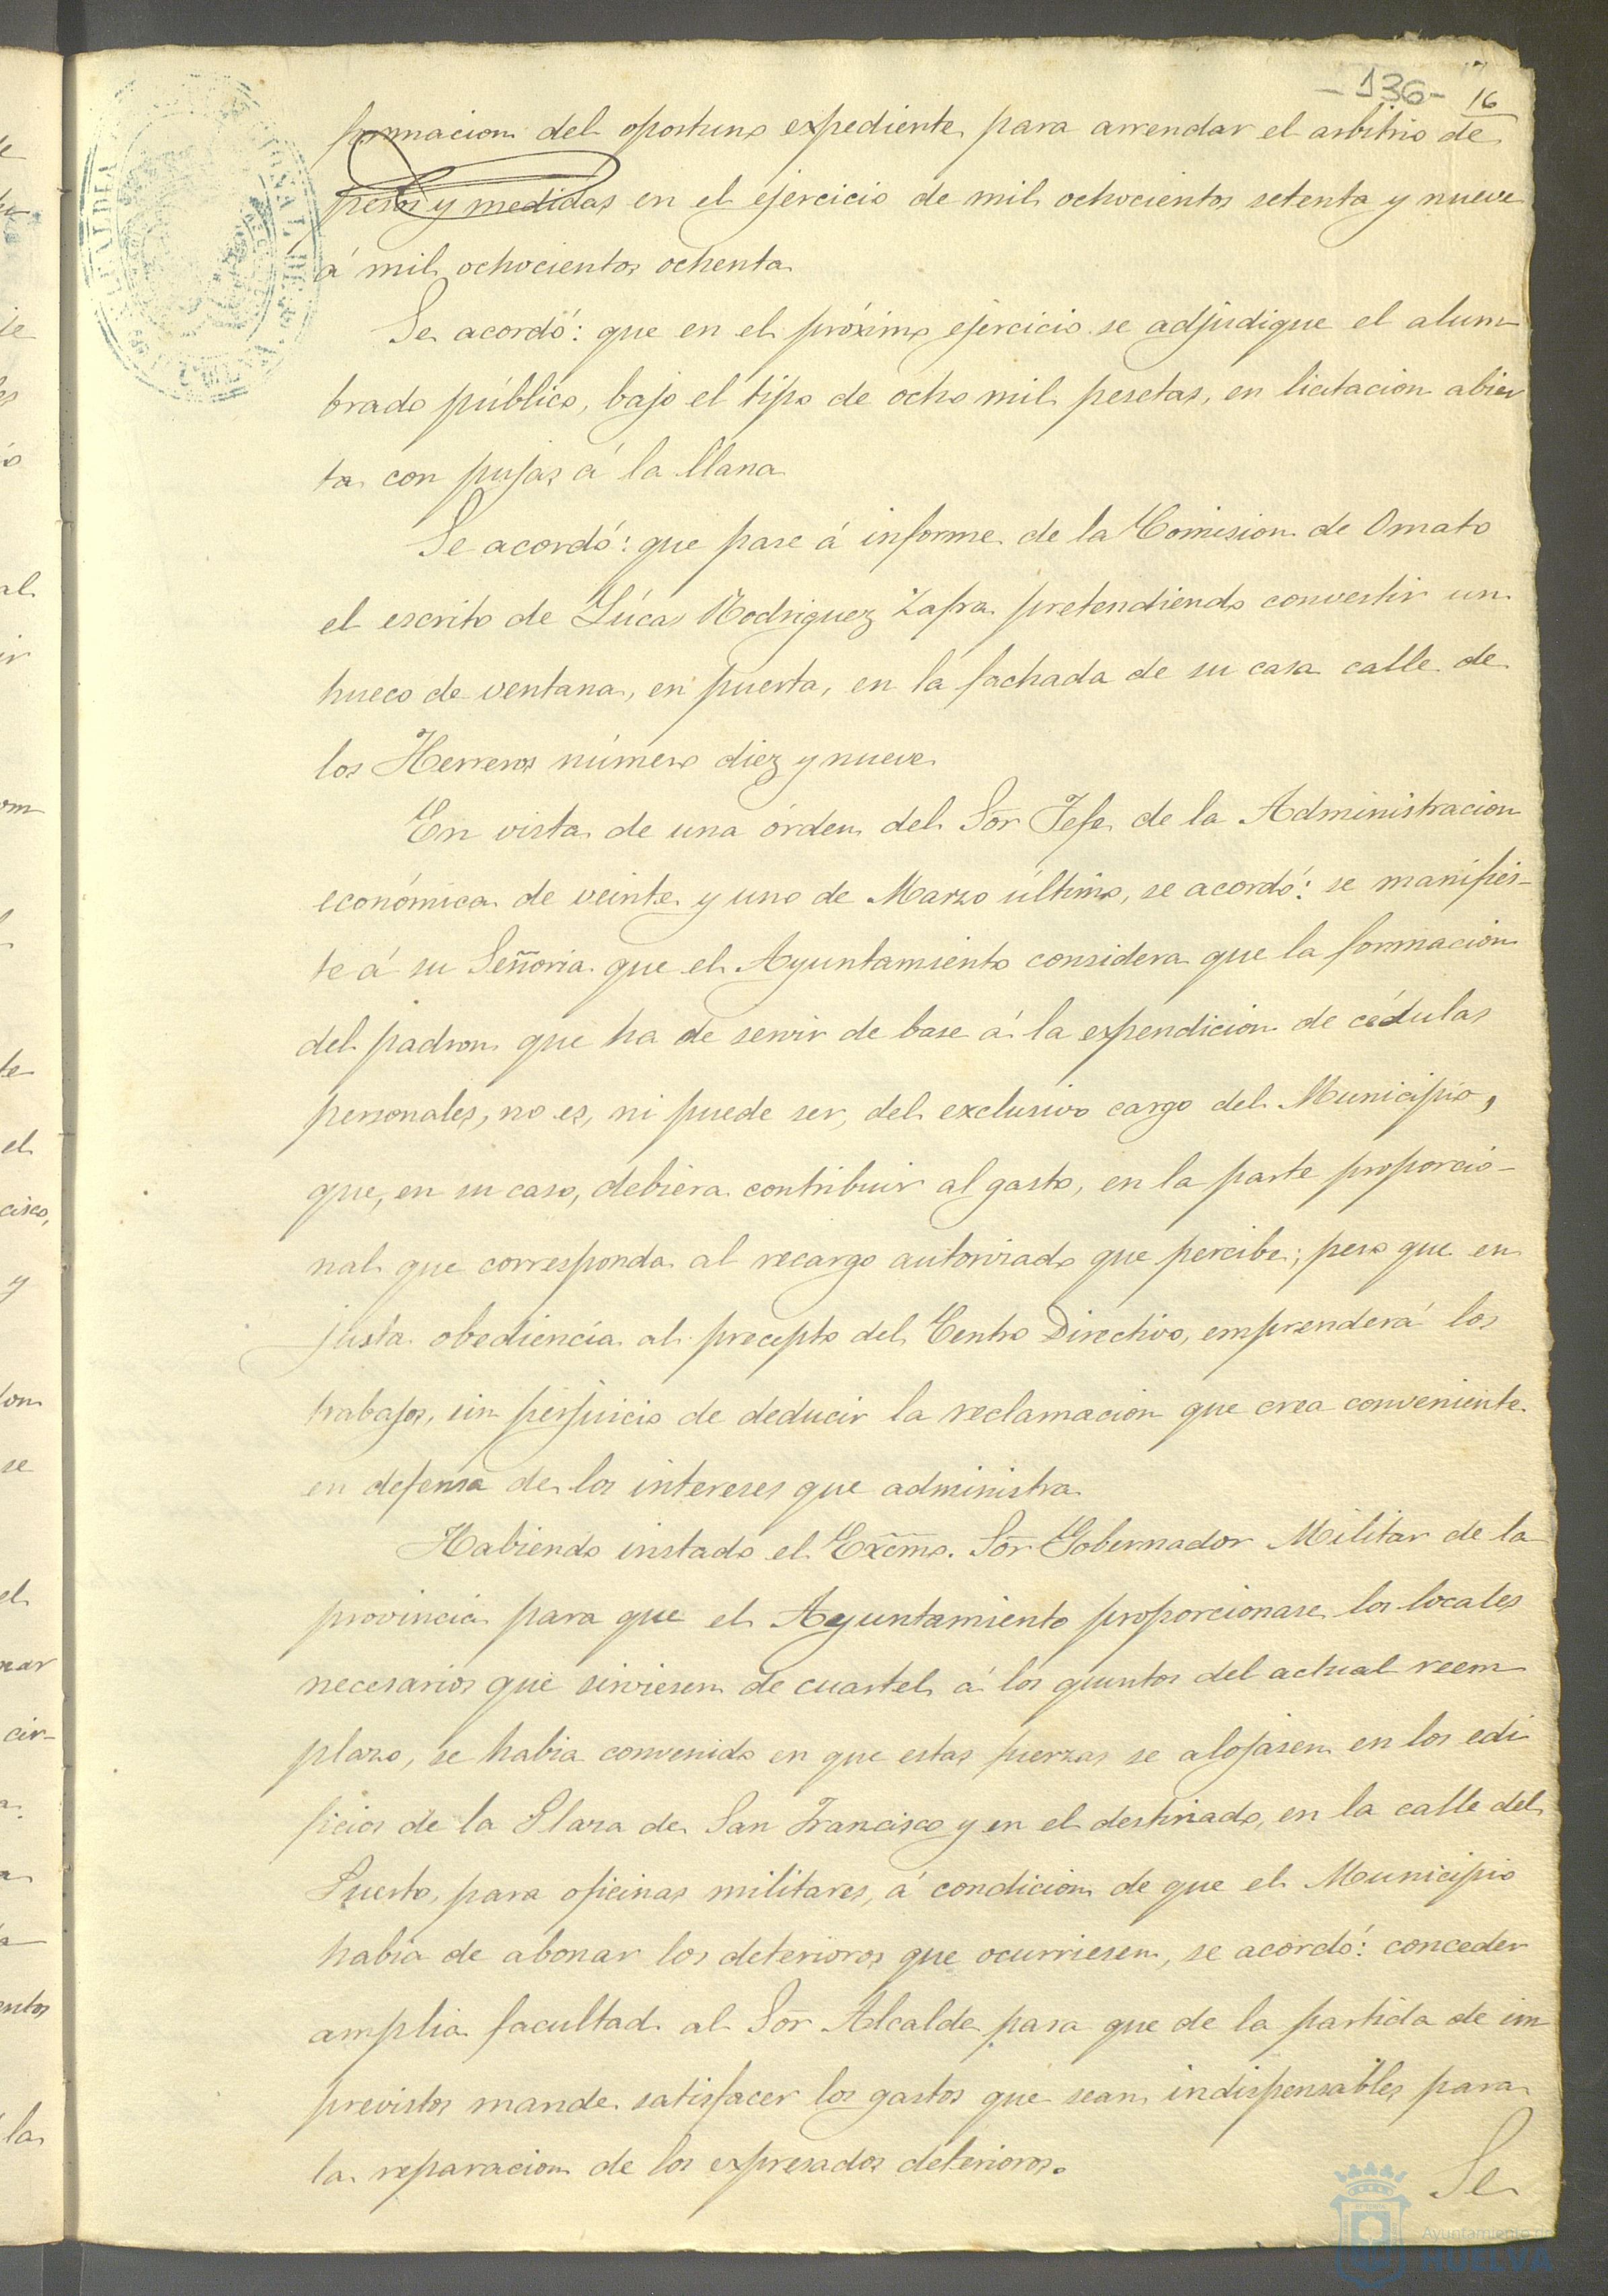 -136- 16
formacion del oportuno expediente para arrendar el arbitrio de
pesos y medidas en el ejercicio de mil ochocientos setenta y nueve
á mil ochocientos ochenta
Se acordó: que en el próximo ejercicio se adjudique el alum
brado público, bajo el tipo de ocho mil pesetas, en licitacion abier
ta con pujas á la llana
Se acordó: que pase á informe de la Comision de Ornato
el escrito de Lúcas Rodriguez Zafra pretendiendo convertir un
hueco de ventana, en puerta, en la fachada de su casa calle de
los Herreros número diez y nueve
En vista de una órden del Sor Jefe de la Administracion
económica de veinte y uno de Marzo último, se acordó: se manifies-
te á su Señoria que el Ayuntamiento considera que la formacion
del padron que ha de servir de base á la expendicion de cédulas
personales, no es, ni puede ser, del exclusivo cargo del Municipio,
que, en su caso, debiera contribuir al gasto, en la parte proporcio-
nal que corresponda al recargo autorizado que percibe; pero que en
justa obediencia al precepto del Centro Directivo, emprenderá los
trabajos, sin perjuicio de deducir la reclamacion que crea conveniente
en defensa de los intereses que administra
Habiendo instado el Excmo. Sor Gobernador Militar de la
provincia para que el Ayuntamiento proporcionase los locales
necesarios que sirviesen de cuartel á los quintos del actual reem
plazo, se habia convenido en que estas fuerzas se alojasen en los edi
ficios de la Plaza de San Francisco y en el destinado, en la calle del
Puerto, para oficinas militares, á condicion de que el Municipio
habia de abonar los deterioros que ocurriesen, se acordó: conceder
amplia facultad al Sor Alcalde para que de la partida de im
previstos mande satisfacer los gastos que sean indispensables para
la reparacion de los expresados deterioros.
Se
Ayuntamiento de
HUELVA